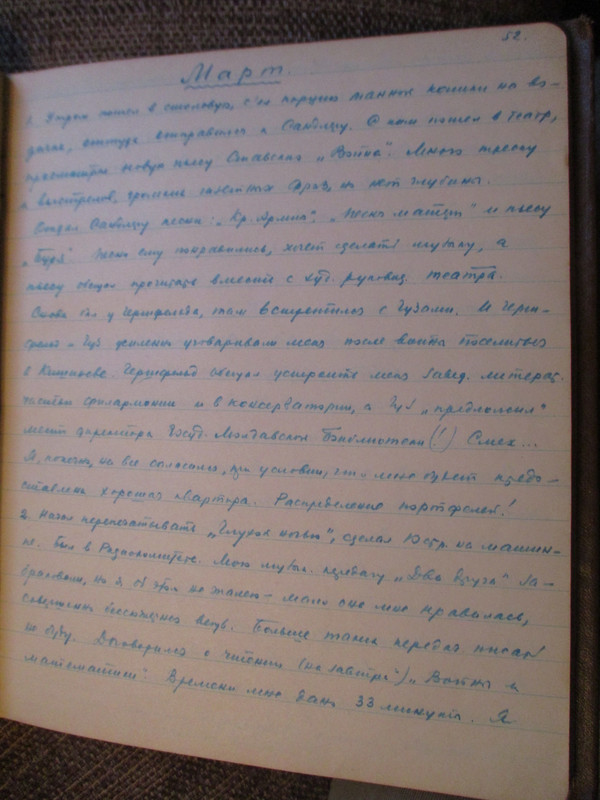 52.
Март.
1. Утром пошел в столовую, съел порцию манной кашки на
дачно, оттуда отправился к Сандлеру. С ним пошел в театр,
просмотрел новую пьесу Ставского „Война". Много треску
и выстрелов, громкие газетных фраз, но нет глубины.
Сандлеру песни: „Кр. Армии", „Песня матери" и пьесу
„Буря". Песни ему понравились, хочет сделать музыку, а
пьесу обещал прочитать вместе с худ. руковод. театра.
Снова был у Гершфельда, там встретился с Гузами. И Герш-
фельд и Гуз усиленно уговаривали меня после войны поселиться
в Кишиневе. Гершфельд обещал устроить меня завед. литерат.
частью филармонии и в консерватории, а Гуз „предложил"
место директора Госуд. Молдавской Библиотеки (!) Смех...
Я, конечно, на все согласился, при условии, что мне будет предо-
ставлена хорошая квартира. Распределение портфелей!
2. Начал перепечатывать „Глухой ночью", сделал 10 стр. на машин-
ке. Был в Радиокомитете. Мою музык. передачу „Два друга" за-
браковали, но я об этом не жалею - мало она мне нравилась,
совершенно бессюжетная вещь. Больше таких передач писать
не буду. Договорился о читении (на завтра) „Войны и
математики". Времени мне дано 33 минуты. Я